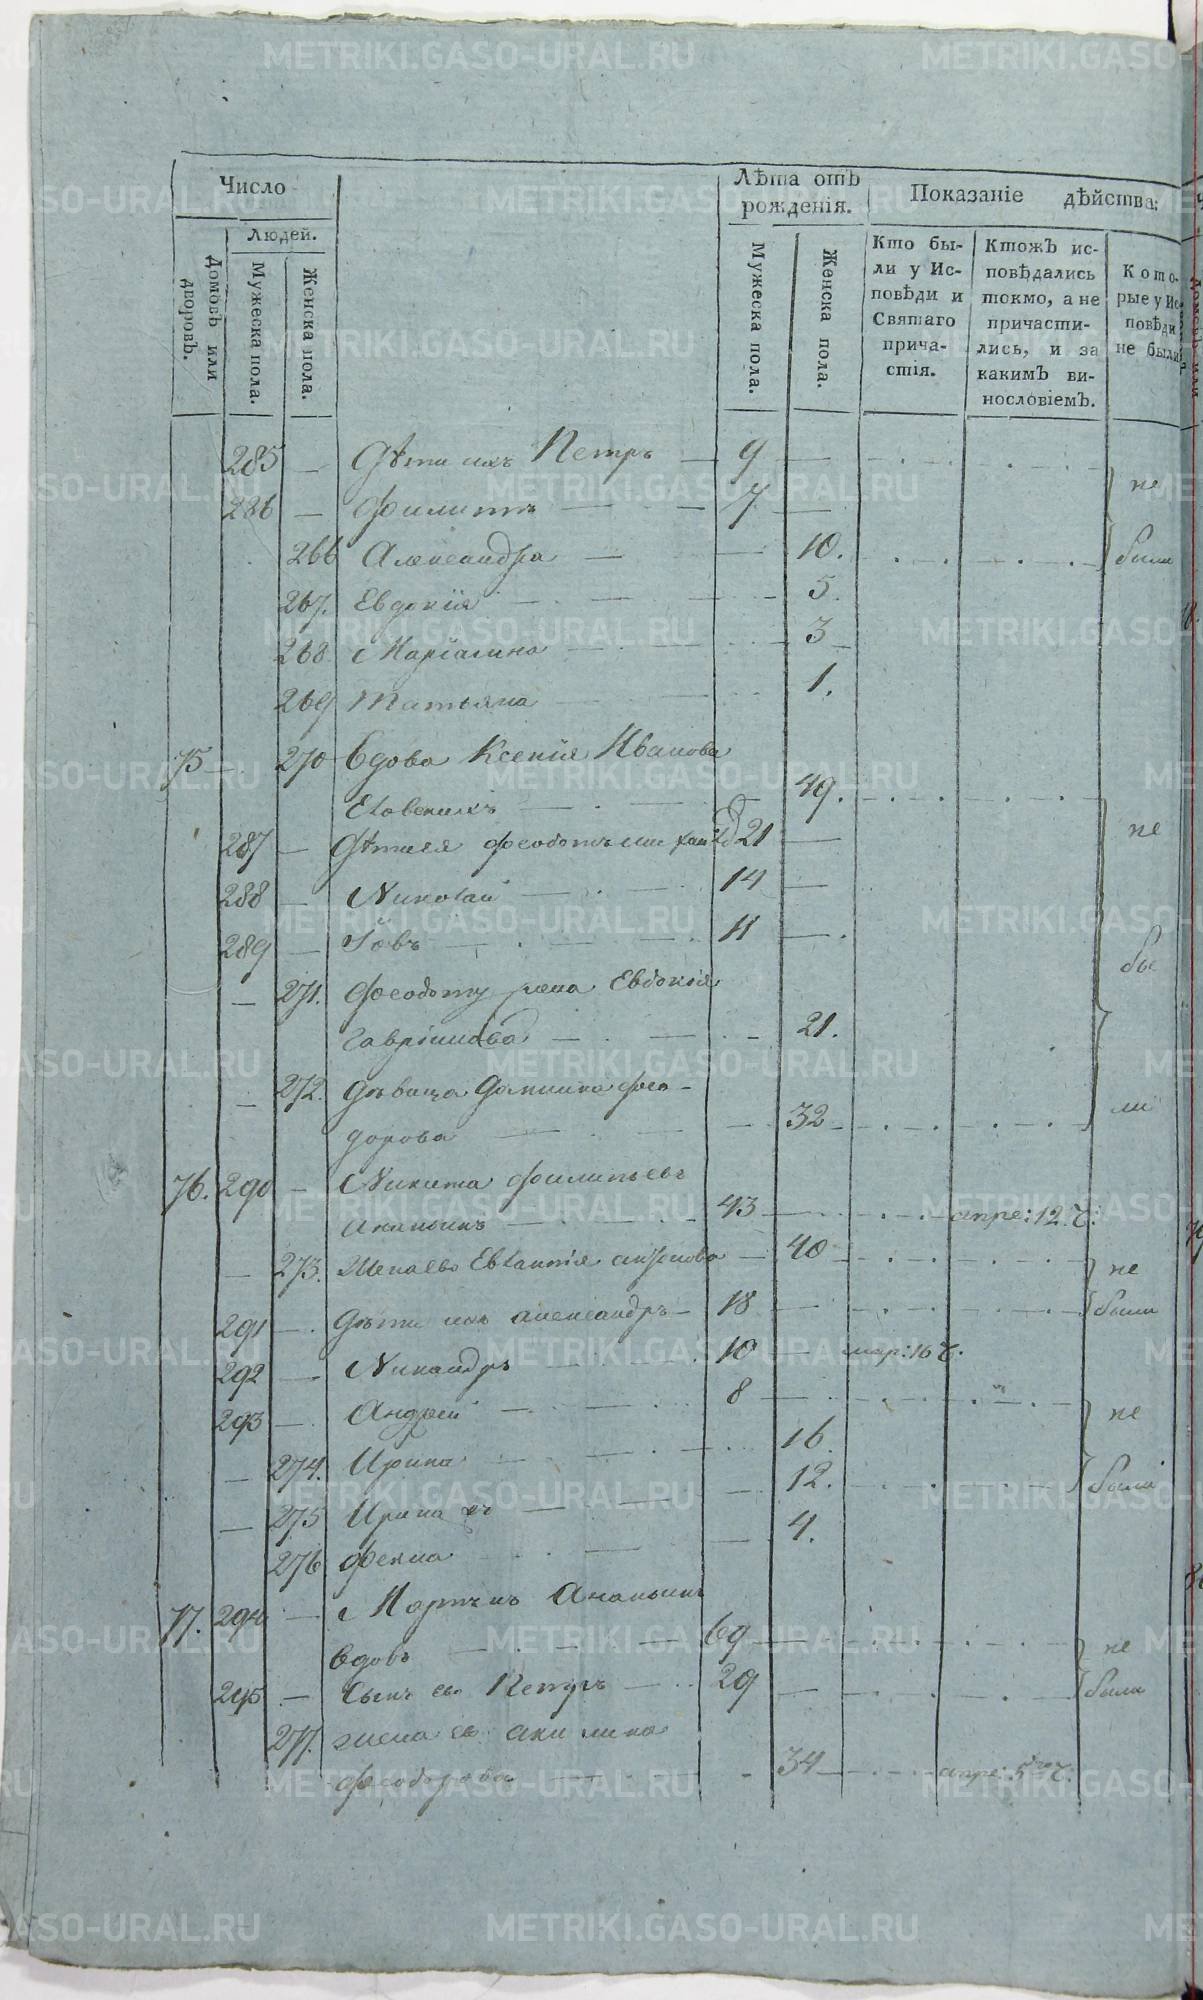 Число
Лѣта отъ рожденія.
Показаніе дѣйства:
Людей.
Домовъ или дворовъ.
Мужеска пола.
Женска пола.
Мужеска пола.
Женска пола.
Кто были у Исповѣди и Святаго причастія.
Ктожъ исповѣдались токмо, а не причастились, и за какимъ винословіемъ.
Которые у Исповѣди не были
285 — Дѣти ихъ Петръ — 9 —
не
286 — Филиппъ — 7 —
266 Александра — 10.
были
267. Евдокія — 5.
268 — 3
269 Татьяна 1.
75 — 270 Вдова Ксенія Иванова
49.
287 — Дѣти ея Феодотъ 21 —
не
288 — Николай — 14 —
289 — Іовъ — 11 —
бы
— 271. Феодоту жена Евдокія
Гавріилова — 21.
— 272. Дѣвица Домника Фео-
ли
дорова — 32
76. 290 — Никита Филипьевъ
Ананьинъ — 43 — апре: 12. Ч:
— 273. Жена ево Евлампія — 40
не
291 — Дѣти ихъ Александръ — 18 —
были
292 — Никандръ — 10 — мар: 16 Ч.
293 — Андрей — 8 —
не
— 274. Ирина — 16.
— 275 Ирина — 12.
были
276 Фекла — 4.
77. 294 — Мартинъ Ананьинъ
вдовъ — 69 —
не
295 — Сынъ ево Петръ — 29 —
были
277. жена ево Акилина
Феодорова — 34 — апре: 5 Ч.
METRIKI.GASO-URAL.RU